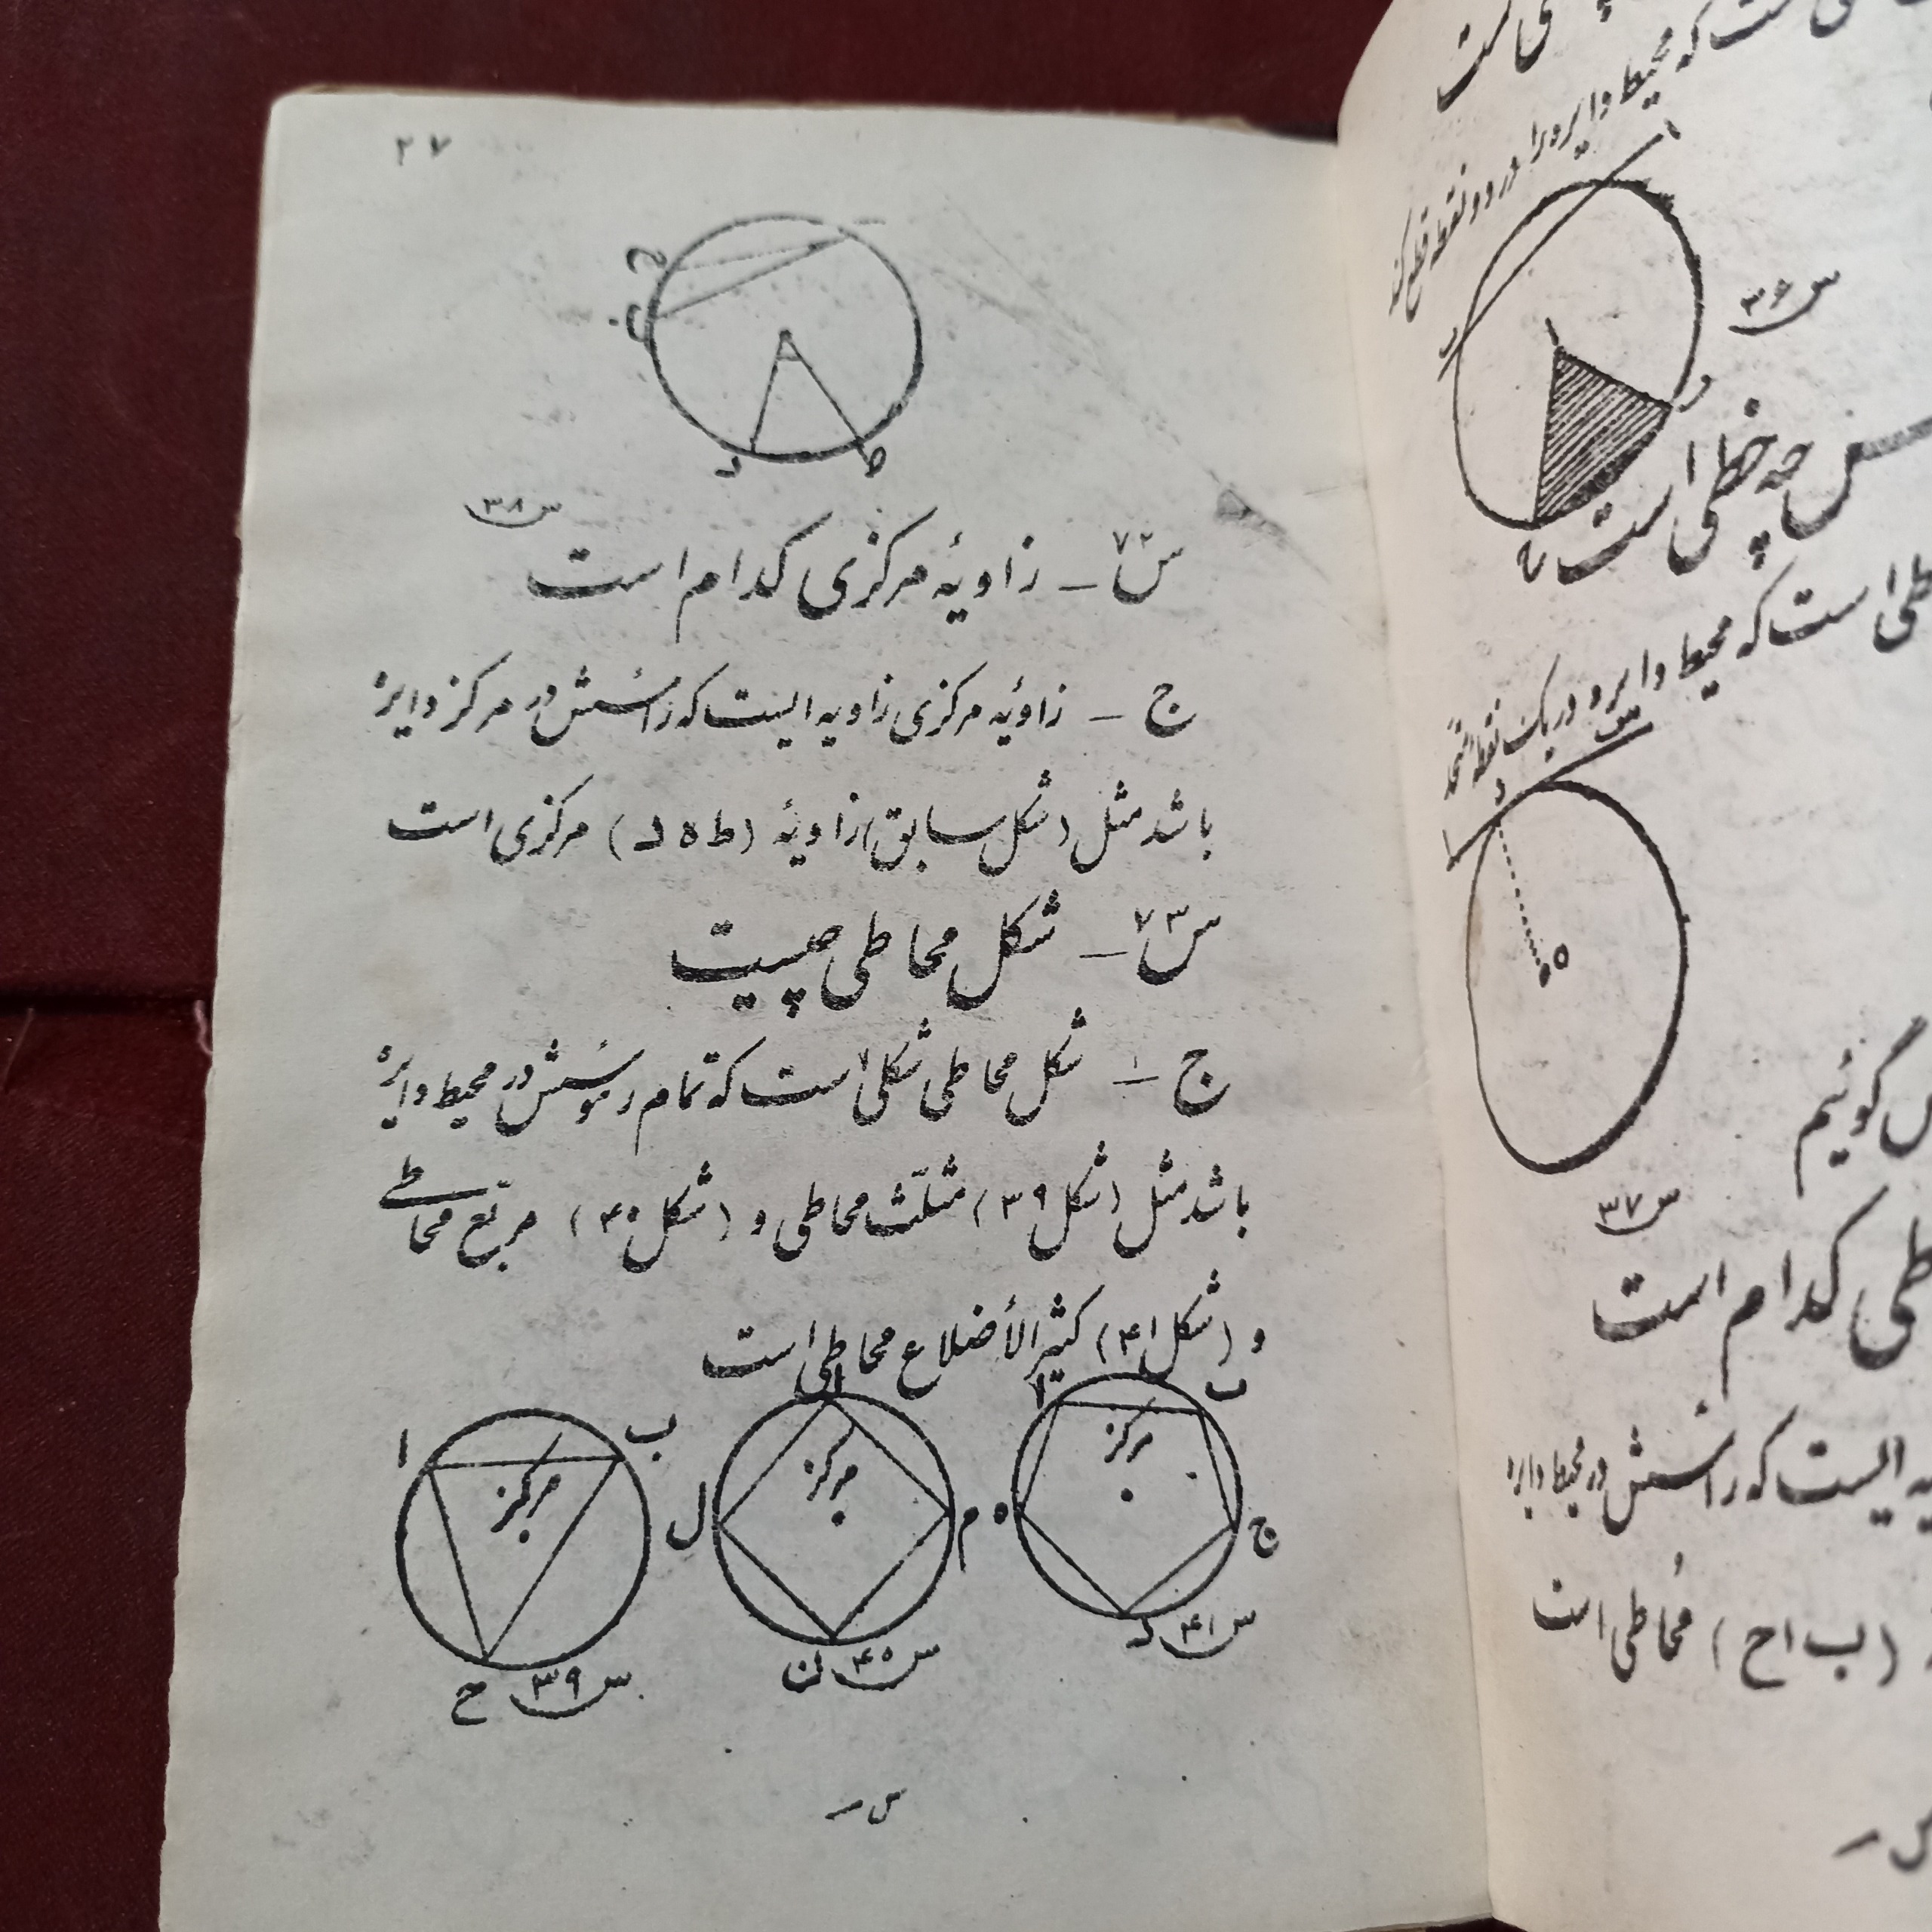 ۲۷
ج
ب
د
ط
س ۳۸
س ۷۲ - زاویهٔ مرکزی کدام است
ج - زاویهٔ مرکزی زاویه ایست که رأسش در مرکز دایرهٔ
باشد مثل (شکل سابق) زاویهٔ (ط ه د) مرکزی است
س ۷۳ - شکل محاطی چیست
ج - شکل محاطی شکلی است که تمام رؤسش در محیط دایرهٔ
باشد مثل (شکل ۳۹) مثلّث محاطی و (شکل ۴۰) مربّع محاطی
و (شکل ۴۱) کثیر الأضلاع محاطی است
ا ب
مرکز
ج
ه
د
س ۴۱
ا
مرکز
م
ل
ن
س ۴۰
ب
ا
مرکز
ح
س ۳۹
س -
است که محیط دایره را در دو نقطه قطع کند
س ۳۶
چه خطی است
است که محیط دایره در یک نقطه
ه
گوئیم
س ۳۷
کدام است
ایست که رأسش در محیط دایره
(ب ا ح) مُحاطی است